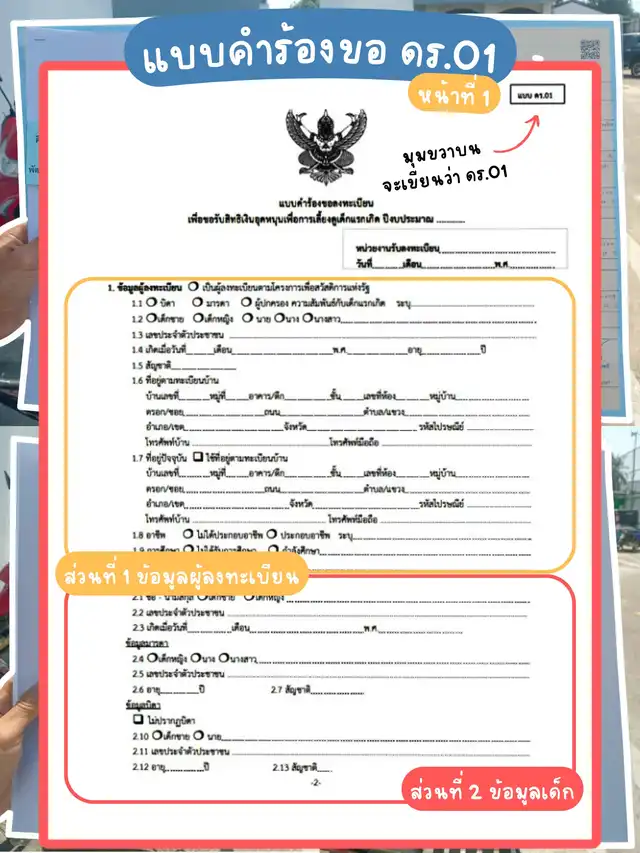 แบบคำร้องขอ ดร.01
หน้าที่ 1
แบบ ดร.01
มุมขวาบน
จะเขียนว่า ดร.01
แบบคำร้องขอลงทะเบียน
เพื่อขอรับสิทธิเงินอุดหนุนเพื่อการเลี้ยงดูเด็กแรกเกิด ปีงบประมาณ ............
หน่วยงานรับลงทะเบียน
วันที่ เดือน พ.ศ.
1. ข้อมูลผู้ลงทะเบียน เป็นผู้ลงทะเบียนตามโครงการเพื่อสวัสดิการแห่งรัฐ
1.1 บิดา มารดา ผู้ปกครอง ความสัมพันธ์กับเด็กแรกเกิด ระบุ
1.2 เด็กชาย เด็กหญิง นาย นาง นางสาว
1.3 เลขประจำตัวประชาชน
1.4 เกิดเมื่อวันที่ เดือน พ.ศ. อายุ ปี
1.5 สัญชาติ
1.6 ที่อยู่ตามทะเบียนบ้าน
บ้านเลขที่ หมู่ที่ อาคาร/ตึก ชั้น เลขที่ห้อง หมู่บ้าน
ตรอก/ซอย ถนน ตำบล/แขวง
อำเภอ/เขต จังหวัด รหัสไปรษณีย์
โทรศัพท์บ้าน โทรศัพท์มือถือ
1.7 ที่อยู่ปัจจุบัน ใช้ที่อยู่ตามทะเบียนบ้าน
บ้านเลขที่ หมู่ที่ อาคาร/ตึก ชั้น เลขที่ห้อง หมู่บ้าน
ตรอก/ซอย ถนน ตำบล/แขวง
อำเภอ/เขต จังหวัด รหัสไปรษณีย์
โทรศัพท์บ้าน โทรศัพท์มือถือ
1.8 อาชีพ ไม่ได้ประกอบอาชีพ ประกอบอาชีพ ระบุ
1.9 การศึกษา ไม่ได้รับการศึกษา กำลังศึกษา
ส่วนที่ 1 ข้อมูลผู้ลงทะเบียน
2.1 ชื่อ - นามสกุล เด็กชาย เด็กหญิง
2.2 เลขประจำตัวประชาชน
2.3 เกิดเมื่อวันที่ เดือน พ.ศ.
ข้อมูลมารดา
2.4 เด็กหญิง นาง นางสาว
2.5 เลขประจำตัวประชาชน
2.6 อายุ ปี 2.7 สัญชาติ
ข้อมูลบิดา
ไม่ปรากฏบิดา
2.10 เด็กชาย นาย
2.11 เลขประจำตัวประชาชน
2.12 อายุ ปี 2.13 สัญชาติ
-2-
ส่วนที่ 2 ข้อมูลเด็ก